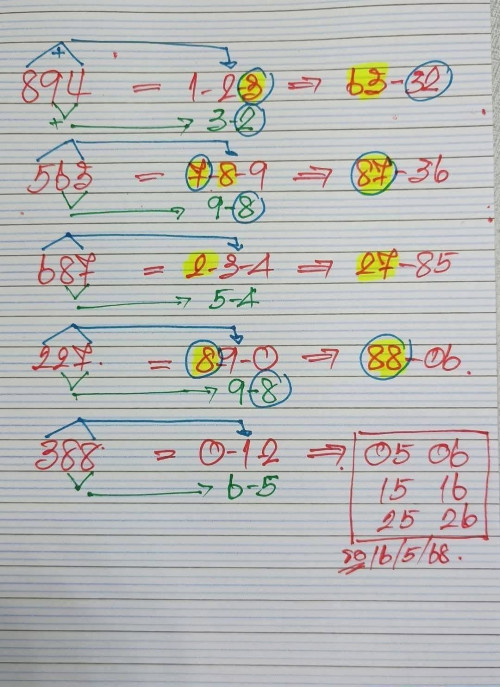 +
894 = 1-2-3 ⇒ 63-32
+ → 3-2
563 = 7-8-9 ⇒ 87-36
→ 9-8
687 = 2-3-4 ⇒ 27-85
→ 5-4
227. = 89-0 ⇒ 88-06.
→ 9-8
388. = 0-12 ⇒ 05 06
→ 6-5 15 16
25 26
/16/5/68.